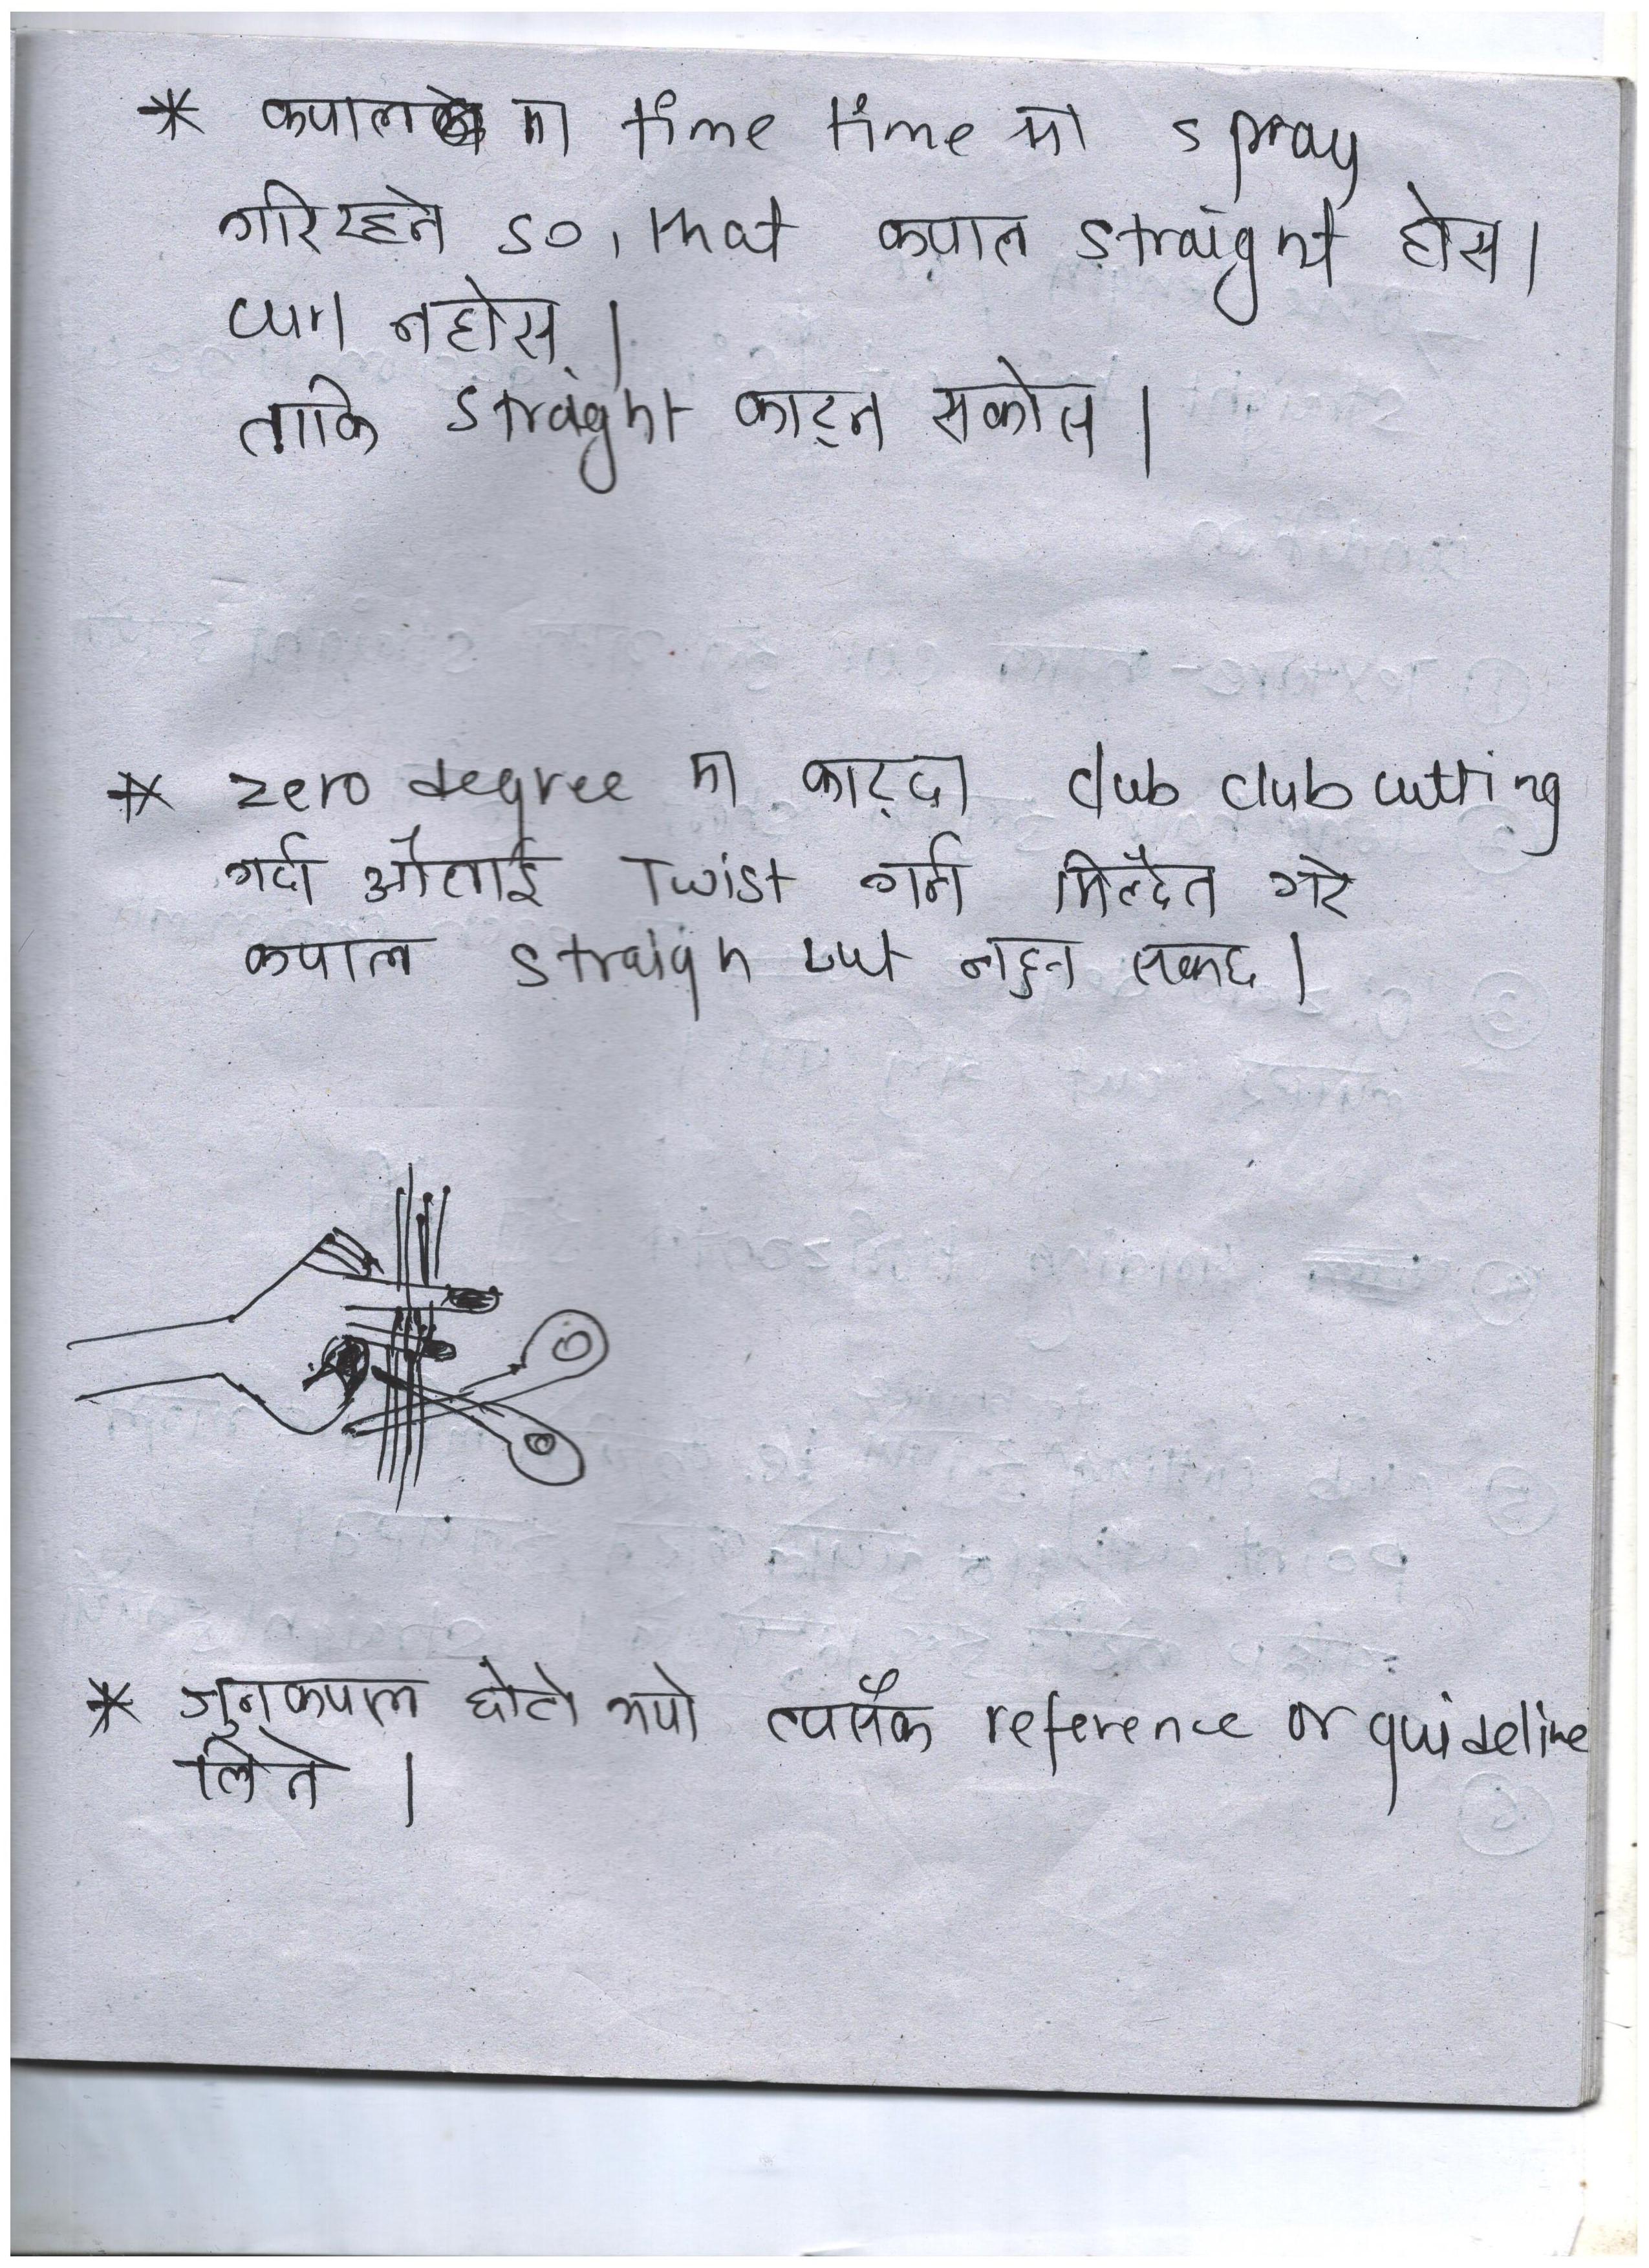 * कपाल मा time time मा spray
गरिरहने so, that कपाल straight होस।
curl नहोस्।
ताकि straight काट्न सकोस।
* zero degree मा काट्दा club club cutting
गर्दा औलाई Twist गर्न मिल्दैन गरे
कपाल straigh cut नहुन सक्छ।
* जुन कपाल छोटो भयो त्यसैक reference or guideline
लिने।